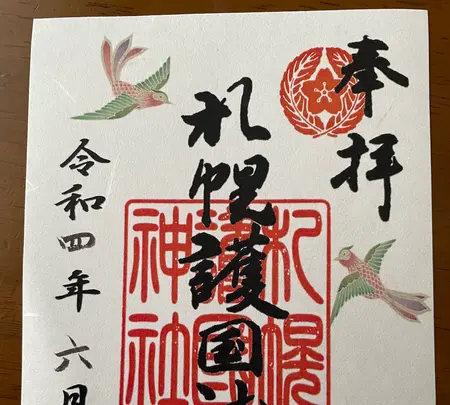 奉拝
札幌護国
令和四年六月
札幌
護国
神社